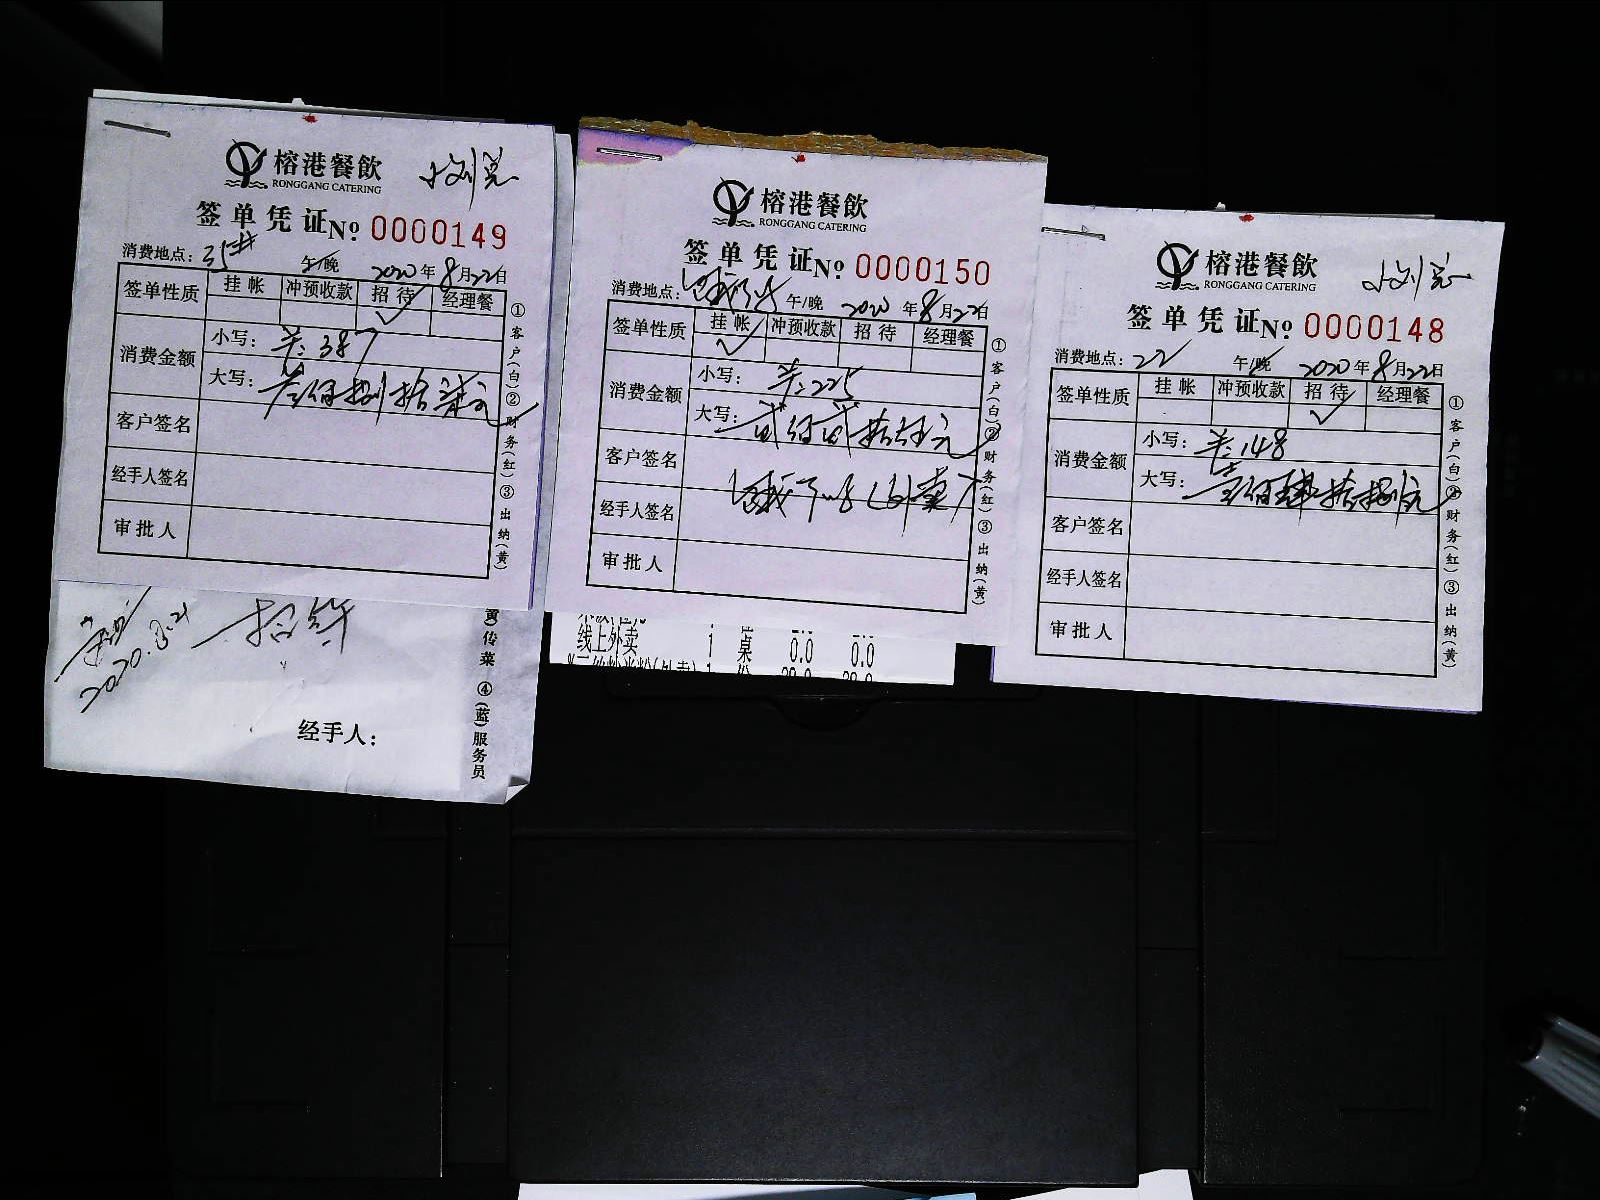 榕港餐飲 小刘总
RONGGANG CATERING
签单凭证№ 0000149
消费地点：35# 午/晚 2020年8月22日
签单性质 挂帐 冲预收款 招待 经理餐
✓
消费金额 小写：羊：387
大写：叁佰捌拾柒元
客户签名
经手人签名
审批人
①客户(白)②财务(红)③出纳(黄)
2020.8.21 招待
经手人：
黄)传菜 ④(蓝)服务员
榕港餐飲
RONGGANG CATERING
签单凭证№ 0000150
消费地点：饿了么 午/晚 2020年8月22日
签单性质 挂帐 冲预收款 招待 经理餐
✓
消费金额 小写：羊：225
大写：贰佰贰拾伍元
客户签名
饿了么(外卖)
经手人签名
审批人
①客户(白)②财务(红)③出纳(黄)
线上外卖 1 桌 0.0 0.0
榕港餐飲 小刘总
RONGGANG CATERING
签单凭证№ 0000148
消费地点：22 午/晚 2020年8月22日
签单性质 挂帐 冲预收款 招待 经理餐
✓
消费金额 小写：羊：148
大写：壹佰肆拾捌元
客户签名
经手人签名
审批人
①客户(白)②财务(红)③出纳(黄)